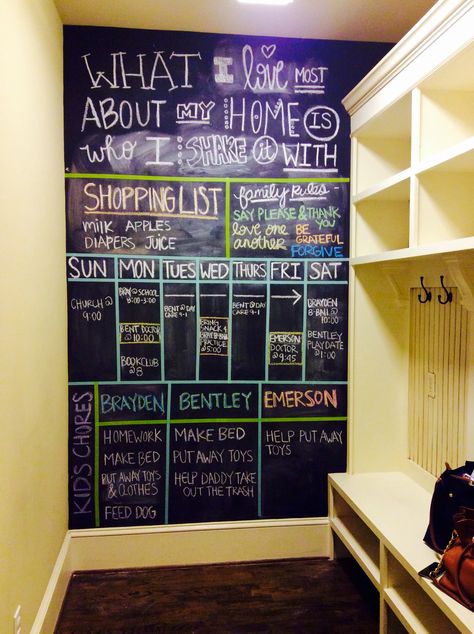 WHAT I love MOST
ABOUT MY HOME IS
who I SHAKE it WITH
SHOPPING LIST
milk APPLES
DIAPERS JUICE
family RULES
SAY PLEASE & THANK YOU
love one another
BE GRATEFUL
FORGIVE
SUN MON TUES WED THURS FRI SAT
CHURCH @ 9:00
@ SCHOOL
9:00-3:00
BENT DOCTOR
@ 10:00
BOOKCLUB
@ 8
BENT @ DAY
CARE 9-1
BRING
SNACK 4
PRACTICE
@ 5:00
BENT @ DAY
CARE 9-1
EMERSON
DOCTOR
@ 9:45
BRAYDEN
@ 10:00
BENTLEY
PLAYDATE
@ 1:00
KID'S CHORES
BRAYDEN BENTLEY EMERSON
HOMEWORK
MAKE BED
PUT AWAY TOYS
& CLOTHES
FEED DOG
MAKE BED
PUT AWAY TOYS
HELP DADDY TAKE
OUT THE TRASH
HELP PUT AWAY
TOYS